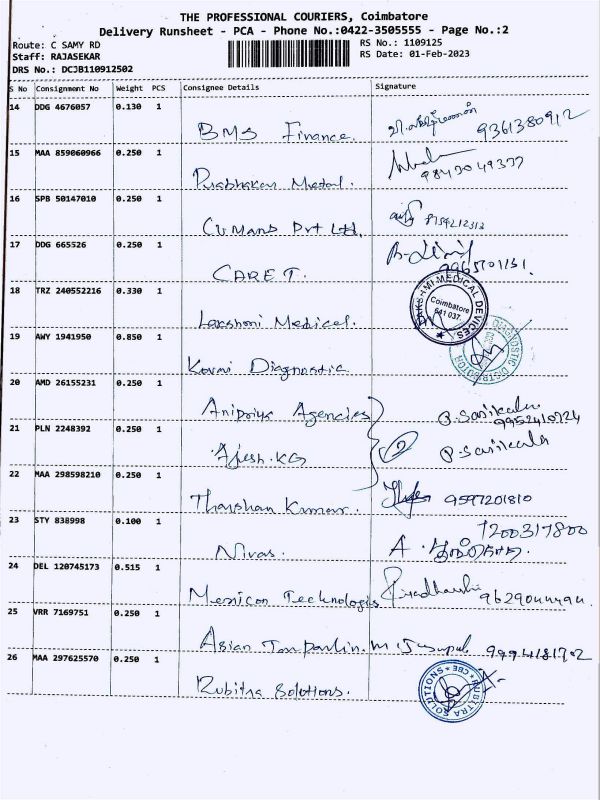 THE PROFESSIONAL COURIERS, Coimbatore
Delivery Runsheet - PCA - Phone No.:0422-3505555 - Page No.:2
Route: C SAMY RD RS No.: 1109125
Staff: RAJASEKAR RS Date: 01-Feb-2023
DRS No.: DCJB110912502
S No Consignment No Weight PCS Consignee Details Signature
14 DDG 4676057 0.130 1
BMS Finance. 9361380912
15 MAA 859060966 0.250 1
Prabhakar Metal.
16 SPB 50147010 0.250 1
Cumans Pvt Ltd.
17 DDG 665526 0.250 1
CARE T.
18 TRZ 240552216 0.330 1
LAKSHMI MEDICAL DEVICES
Coimbatore
641 037.
Lakshmi Medical.
19 AWY 1941950 0.850 1
Kovai Diagnostic
DIAGNOSTIC DISTRIBUTOR
20 AMD 26155231 0.250 1
Anipriya Agencies
9952410724
21 PLN 2248392 0.250 1
Ajesh.KG P.Sasikala
22 MAA 298598210 0.250 1
Tharshan Kumar. 9597201810
23 STY 838998 0.100 1
7200317800
Nivas. A.
24 DEL 120745173 0.515 1
Mexicon Technologies 9629044494
25 VRR 7169751 0.250 1
Asian Tarpaulin. 9994181702
26 MAA 297625570 0.250 1
Rubitra Solutions.
RUBITRA SOLUTIONS CBE